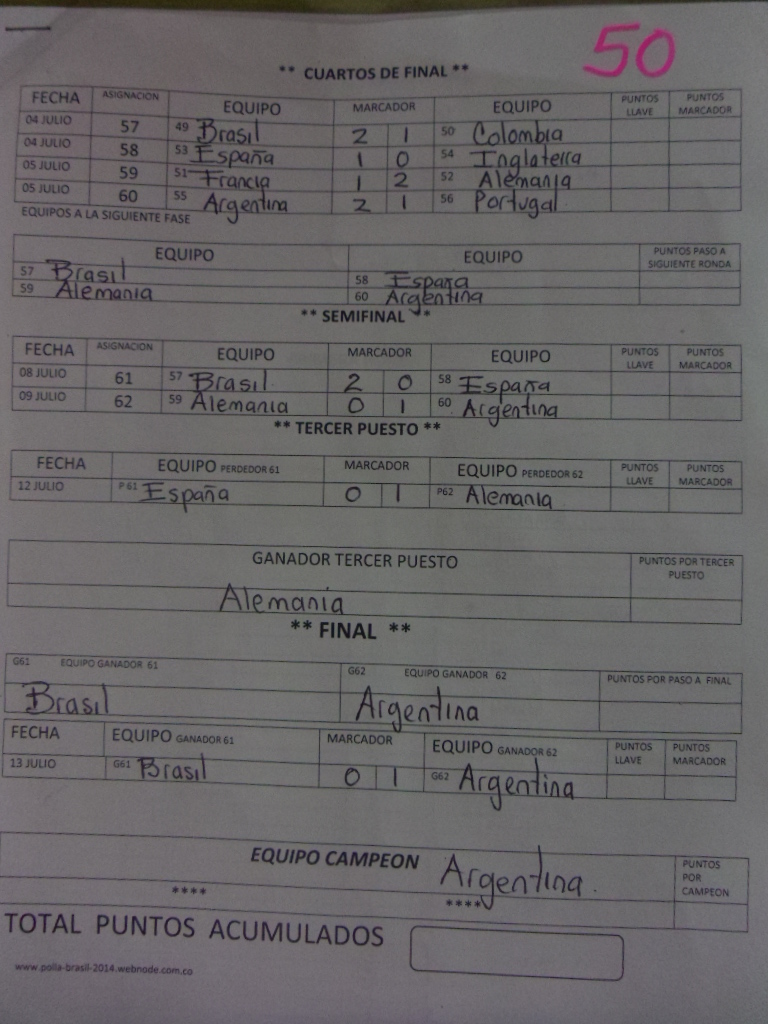 50
** CUARTOS DE FINAL **
FECHA ASIGNACION EQUIPO MARCADOR EQUIPO PUNTOS LLAVE PUNTOS MARCADOR
04 JULIO 57 49 Brasil 2 1 50 Colombia
04 JULIO 58 53 España 1 0 54 Inglaterra
05 JULIO 59 51 Francia 1 2 52 Alemania
05 JULIO 60 55 Argentina 2 1 56 Portugal
EQUIPOS A LA SIGUIENTE FASE
EQUIPO EQUIPO PUNTOS PASO A SIGUIENTE RONDA
57 Brasil 58 España
59 Alemania 60 Argentina
** SEMIFINAL **
FECHA ASIGNACION EQUIPO MARCADOR EQUIPO PUNTOS LLAVE PUNTOS MARCADOR
08 JULIO 61 57 Brasil 2 0 58 España
09 JULIO 62 59 Alemania 0 1 60 Argentina
** TERCER PUESTO **
FECHA EQUIPO PERDEDOR 61 MARCADOR EQUIPO PERDEDOR 62 PUNTOS LLAVE PUNTOS MARCADOR
12 JULIO P 61 España 0 1 P62 Alemania
GANADOR TERCER PUESTO PUNTOS POR TERCER PUESTO
Alemania
** FINAL **
G61 EQUIPO GANADOR 61 G62 EQUIPO GANADOR 62 PUNTOS POR PASO A FINAL
Brasil Argentina
FECHA EQUIPO GANADOR 61 MARCADOR EQUIPO GANADOR 62 PUNTOS LLAVE PUNTOS MARCADOR
13 JULIO G61 Brasil 0 1 G62 Argentina
EQUIPO CAMPEON Argentina. PUNTOS POR CAMPEON
**** ****
TOTAL PUNTOS ACUMULADOS
www.polla-brasil-2014.webnode.com.co